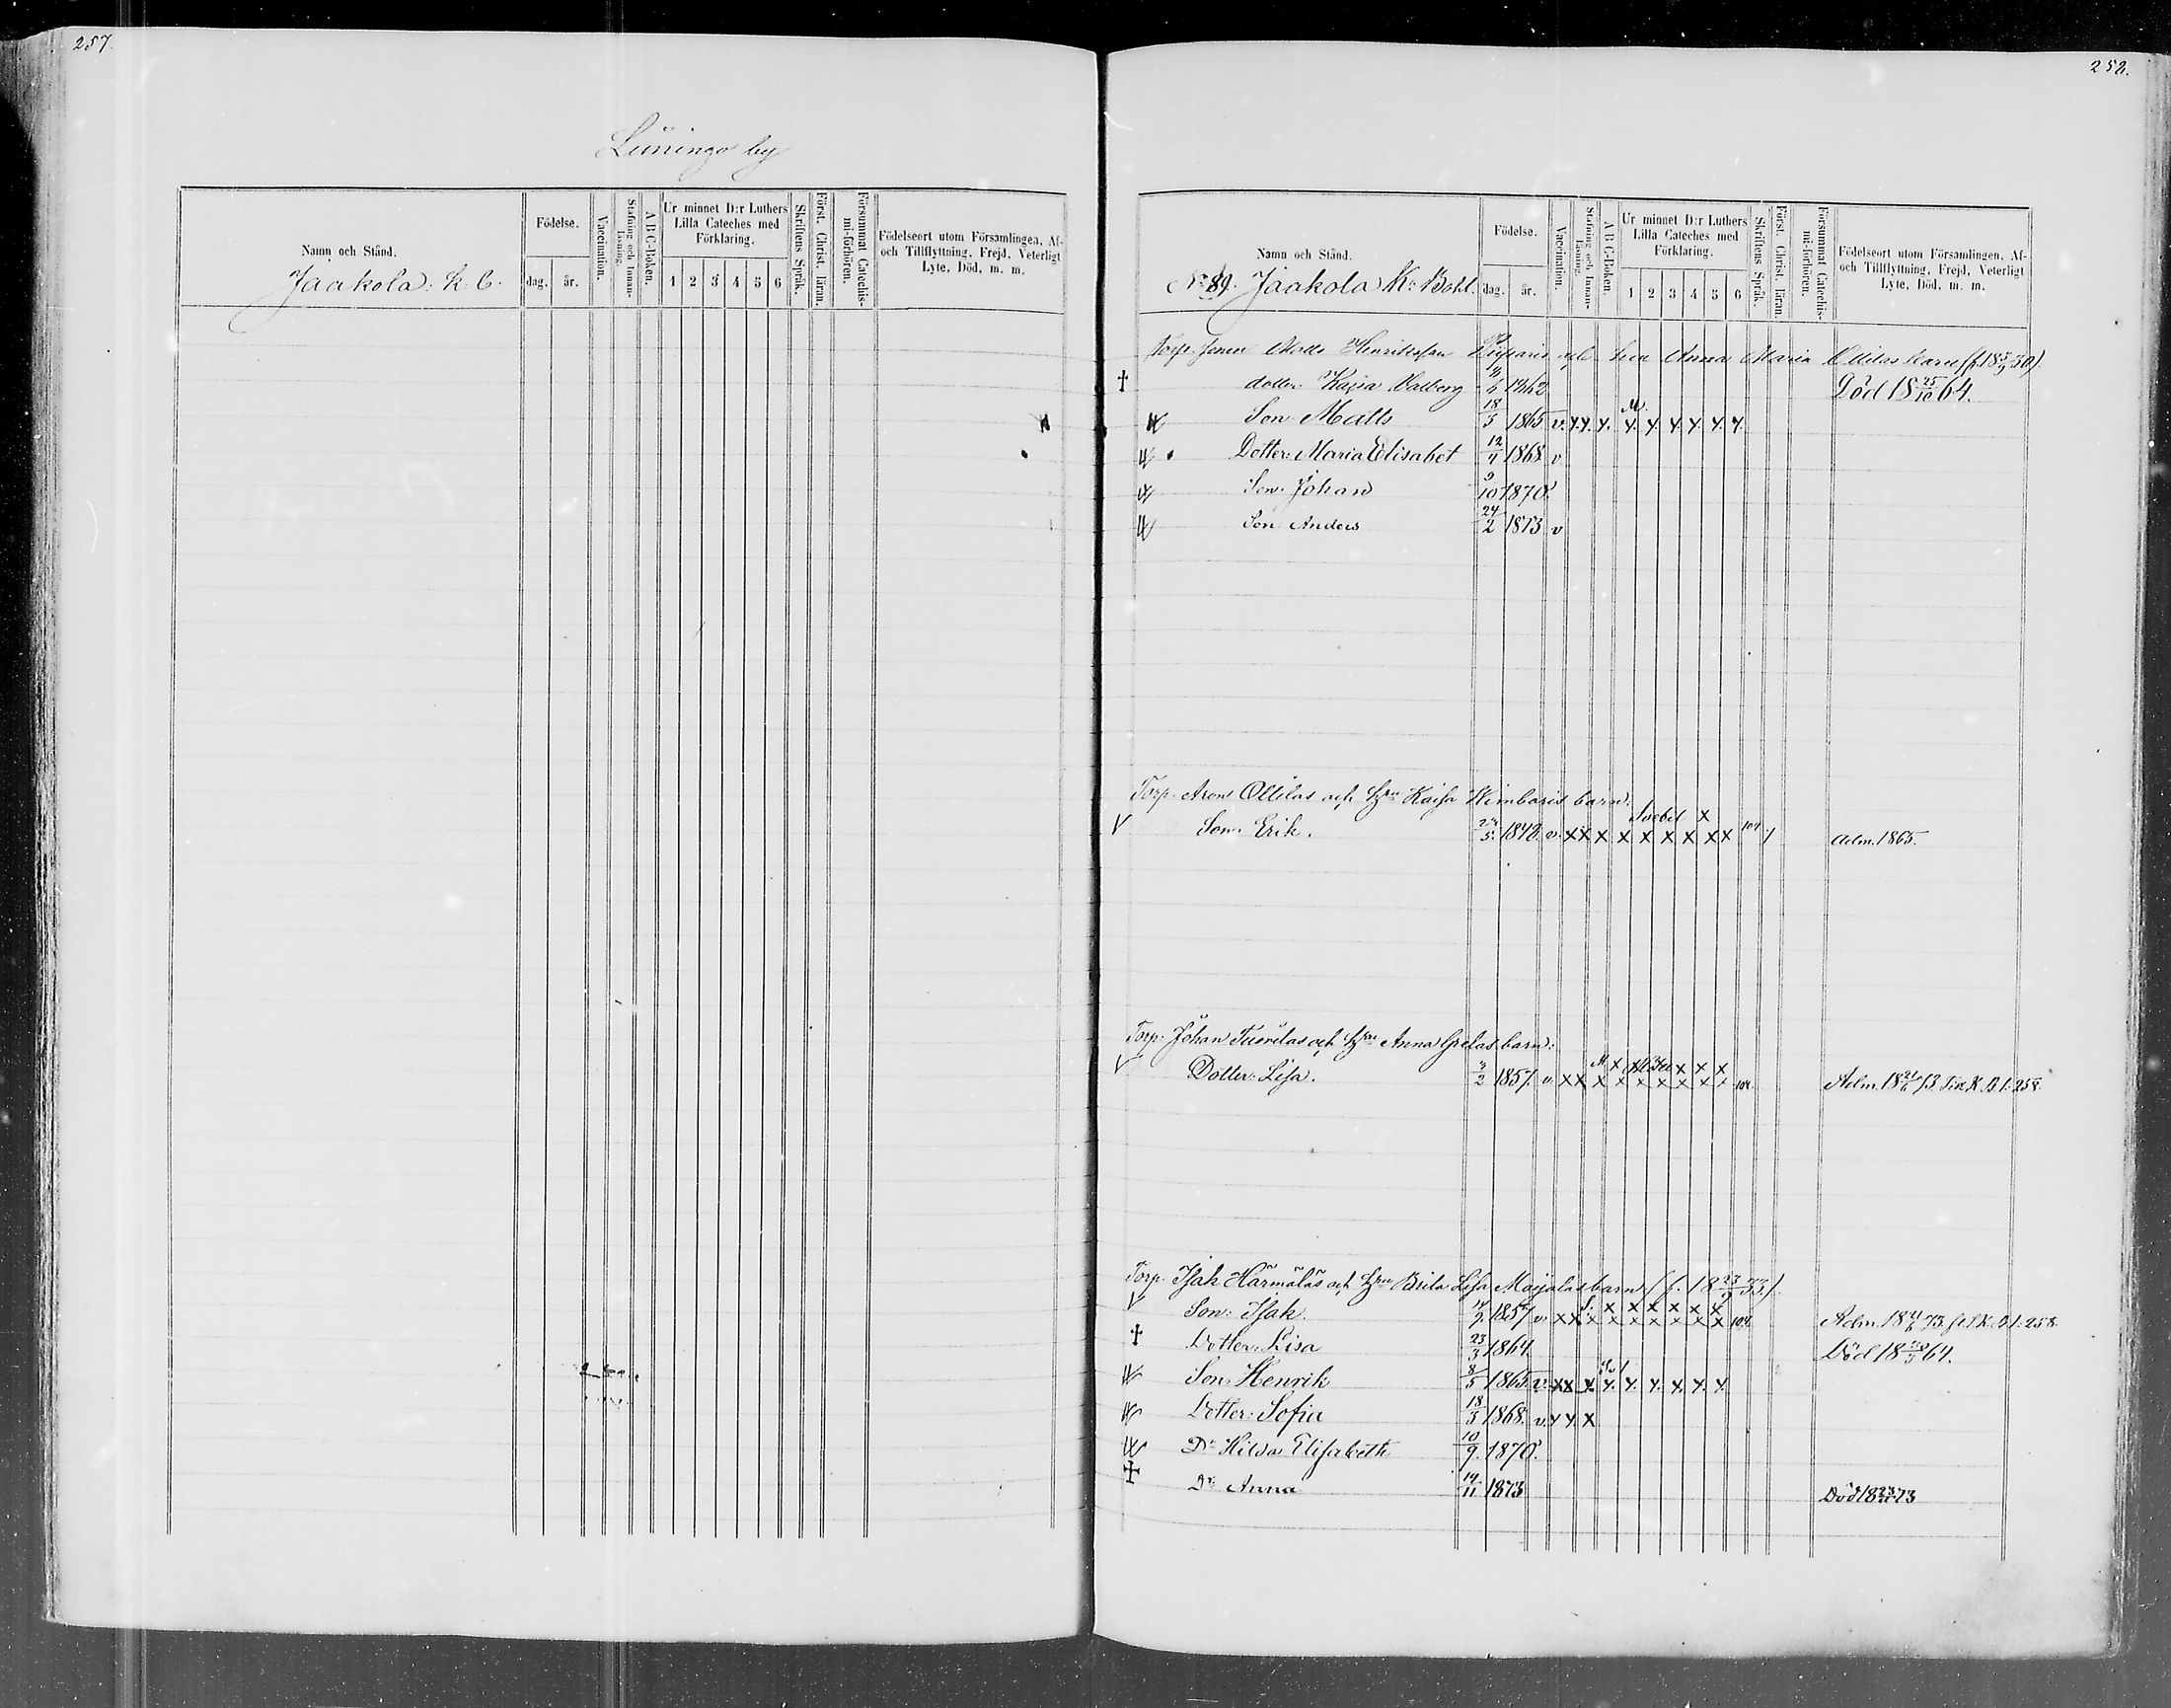 257.
Luningo by
Namn och Stånd.
Jaakola: K. B.
Födelse.
dag.
år.
Vaccination.
Stafning och Innan-
läsning.
A B C-Boken.
Ur minnet D:r Luthers
Lilla Cateches med
Förklaring.
1 2 3 4 5 6
Skriftens Språk.
Först. Christ. läran.
Försummat Catechis-
mi-förhören.
Födelseort utom Församlingen, Af-
och Tillflyttning, Frejd, Veterligt
Lyte, Död, m. m.
258.
Namn och Stånd.
No 89. Jaakola K: Bohl.
Födelse.
dag.
år.
Vaccination.
Stafning och Innan-
läsning.
A B C-Boken.
Ur minnet D:r Luthers
Lilla Cateches med
Förklaring.
1 2 3 4 5 6
Skriftens Språk.
Först. Christ. läran.
Försummat Catechis-
mi-förhören.
Födelseort utom Församlingen, Af-
och Tillflyttning, Frejd, Veterligt
Lyte, Död, m. m.
Matts Henriksson och Anna Maria Ollilas barn
† dotter: Kajsa 1862 Död 18 25/10 64.
Son Matts 18/3 1865 v. M.
Dotter: Maria Elisabet 12/4 1868 v
Son: Johan 9/10 1870.
Son Anders 24/2 1873 v
Torp. Arons Ollilas och Hru Kajsa Kimbaris barn:
Son: Erik. 1848. v. x x x x x x x x x Adm. 1865.
Torp: Johan Tuorilas och Hru Anna Gretas barn:
Dotter: Lisa. 2 1857. v. x x x x x x x x x 104. Adm. 18 21/6 73 K. B. 1: 258.
Torp. Isak Härmäläs och Hru Brita Lisa Maijalas barn (f. 18 23/9 33.)
Son: Isak. 9 1857 v. x x x x x x x x x 104. Adm. 18 21/6 73. K. B. 1: 258.
† Dotter: Lisa 23/3 1864. Död 18 64.
Son: Henrik 8/5 1865 v. x x x
Dotter: Sofia 18/3 1868. v. x
Dr Hilda Elisabeth 10/9. 1870.
† Dr Anna 14/11 1873 Död 18 23/11 73